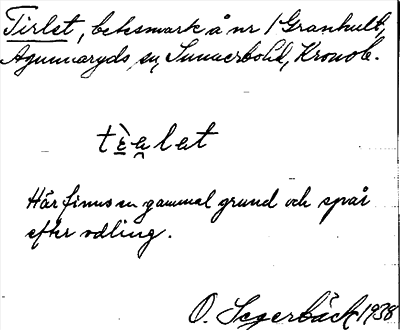 Tirlet, betesmark å nr 1 Granhult,
Agunnaryds sn, Sunnerbohd, Kronob.
tèa̯lat
Här finns en gammal grund och spår
efter odling.
O. Segerbäck 1938